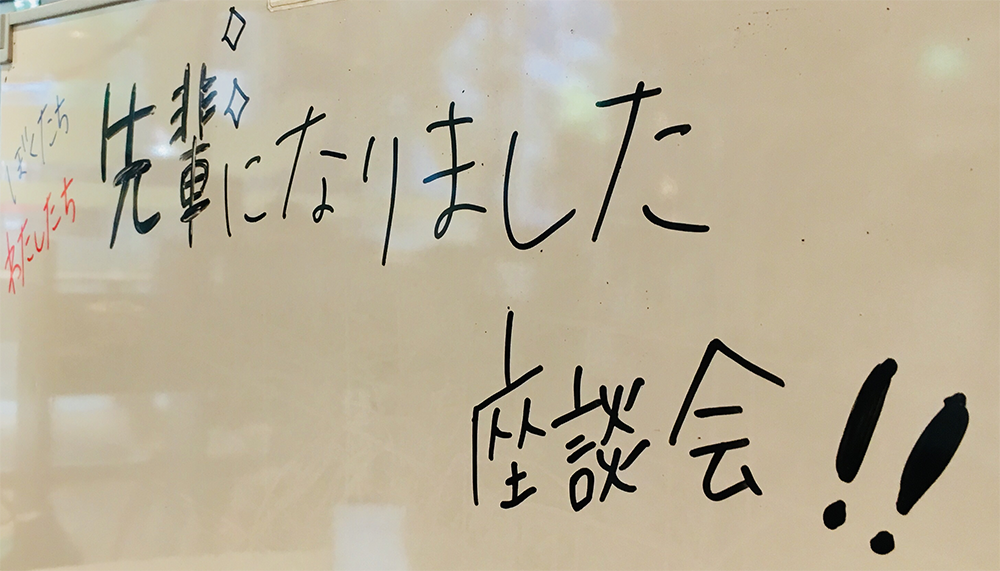 ぼくたち
わたしたち
先輩になりました
座談会!!